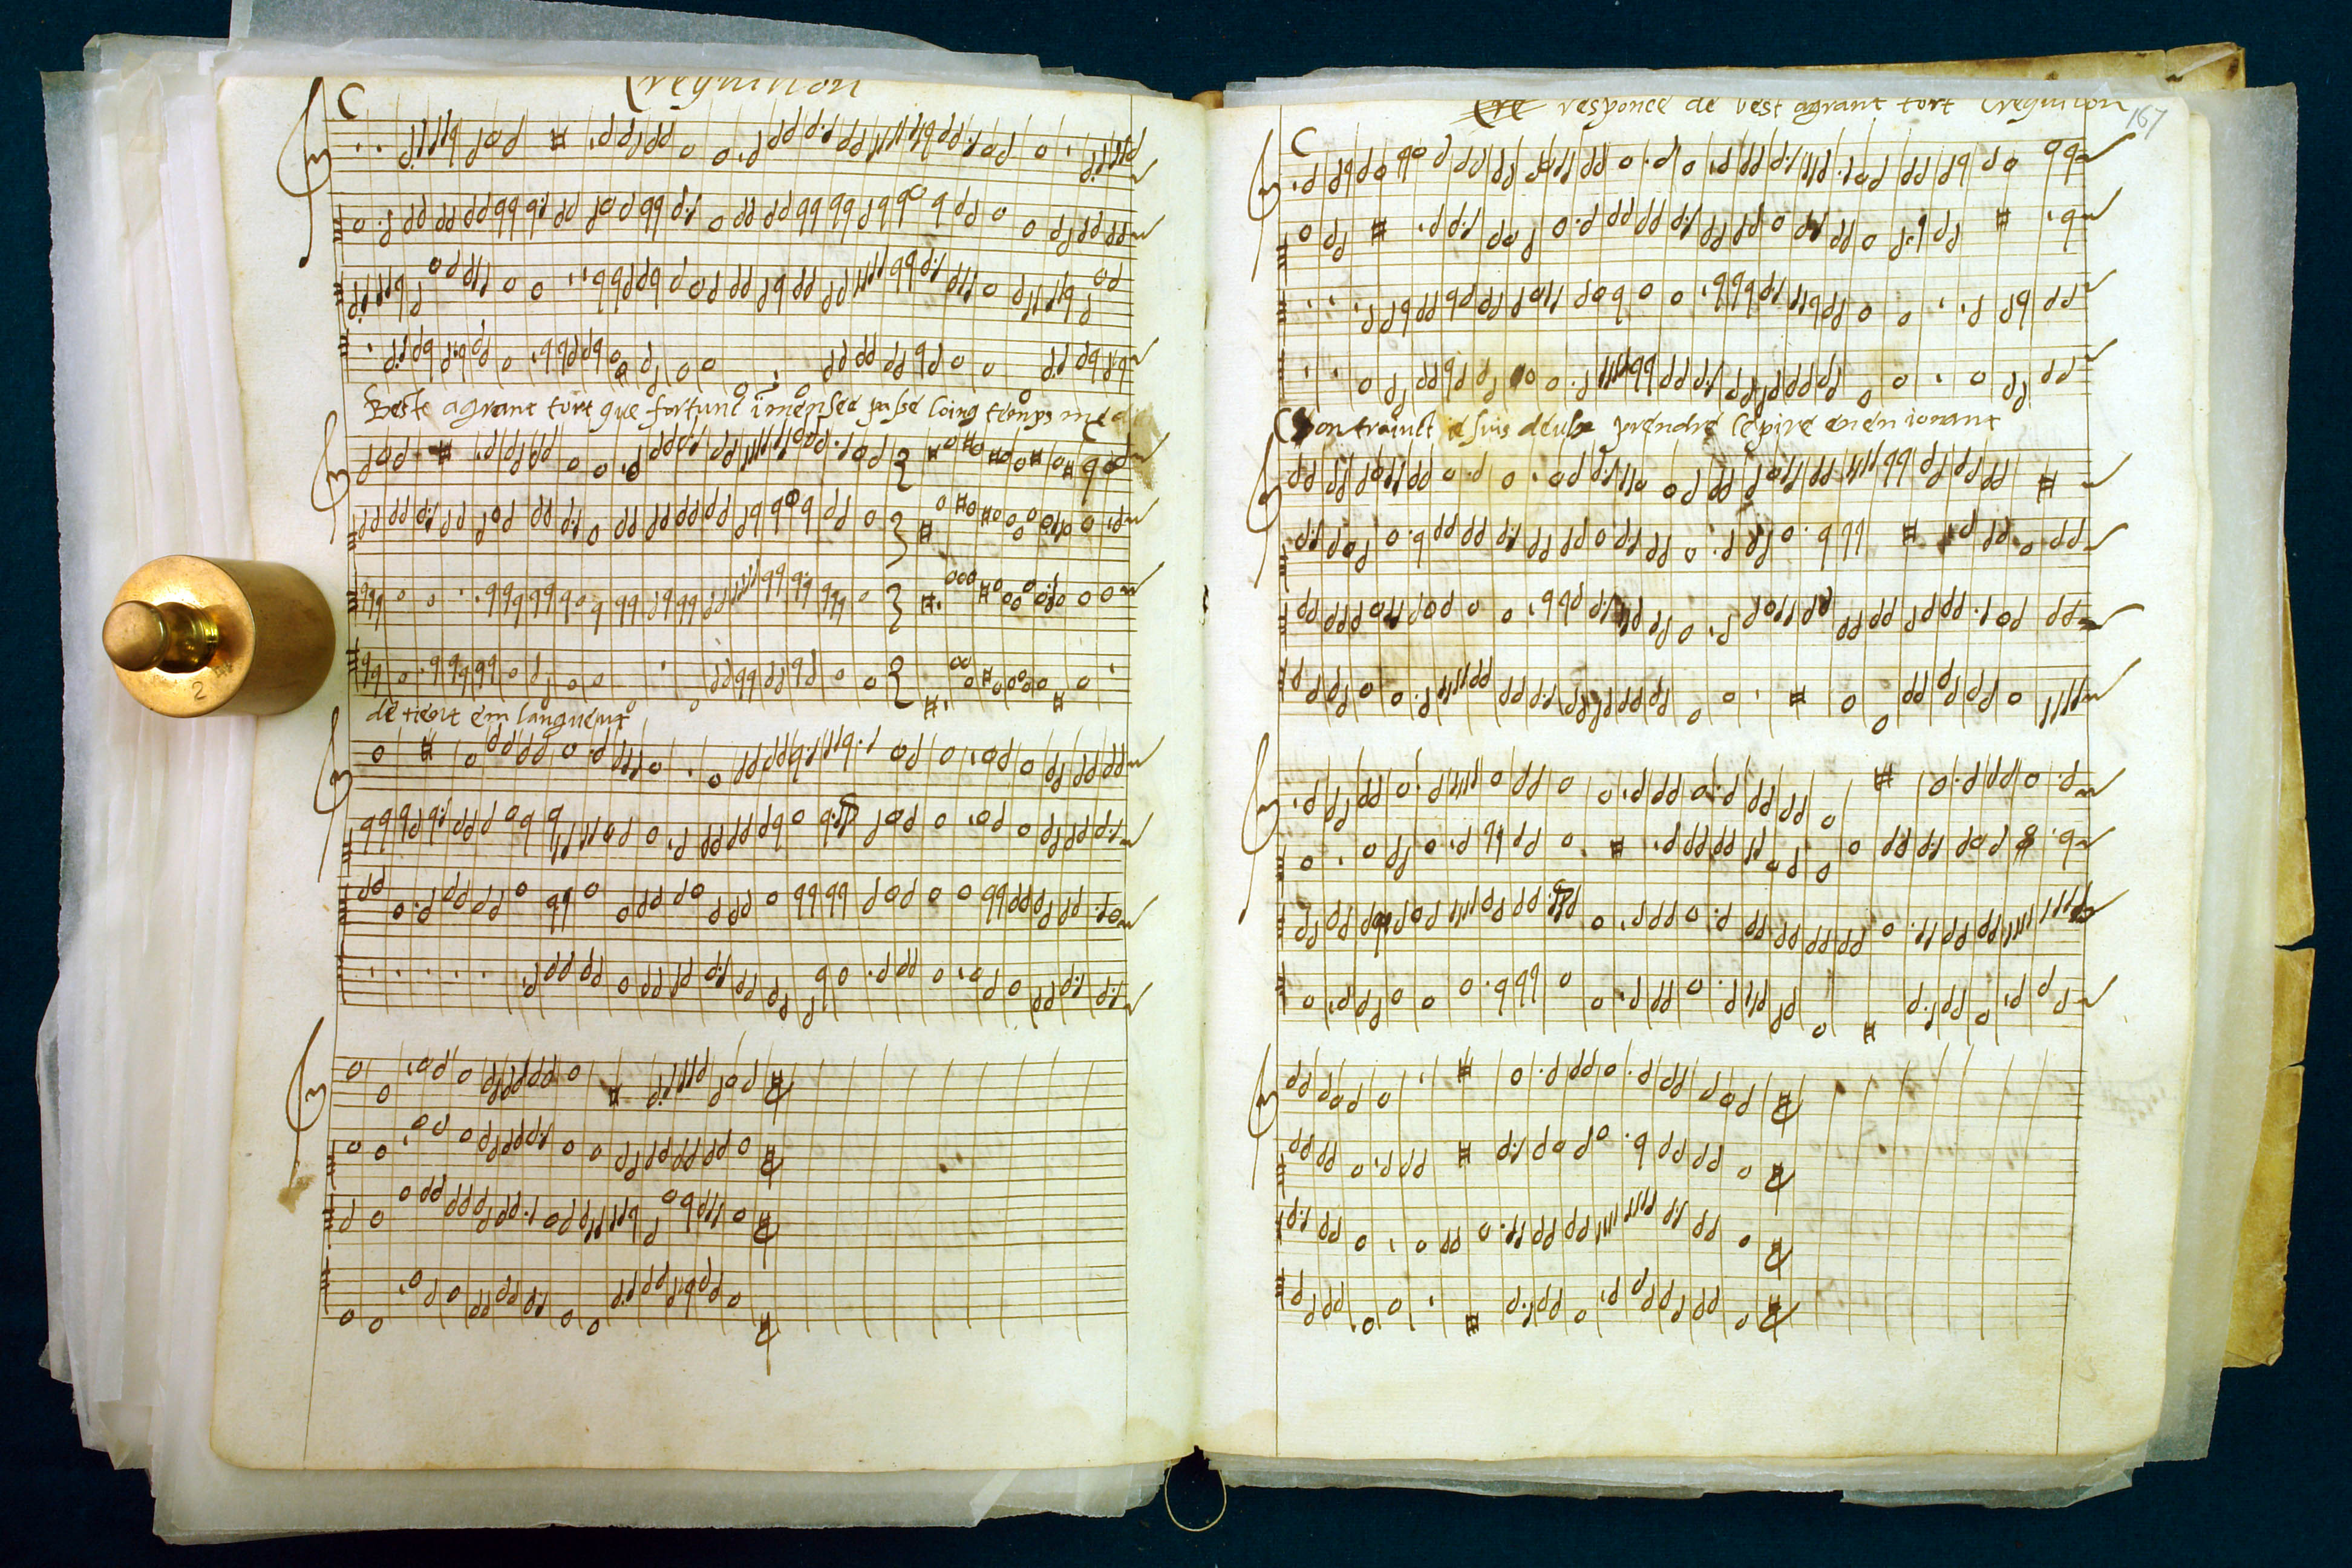 Crequillon
Beste agrant tort que fortune imensee passe loing temps me
de tient em languent
responce de vest agrant tort Crequilon
167
Contrainct ie suis deulx prendre le pire enen iorant
2